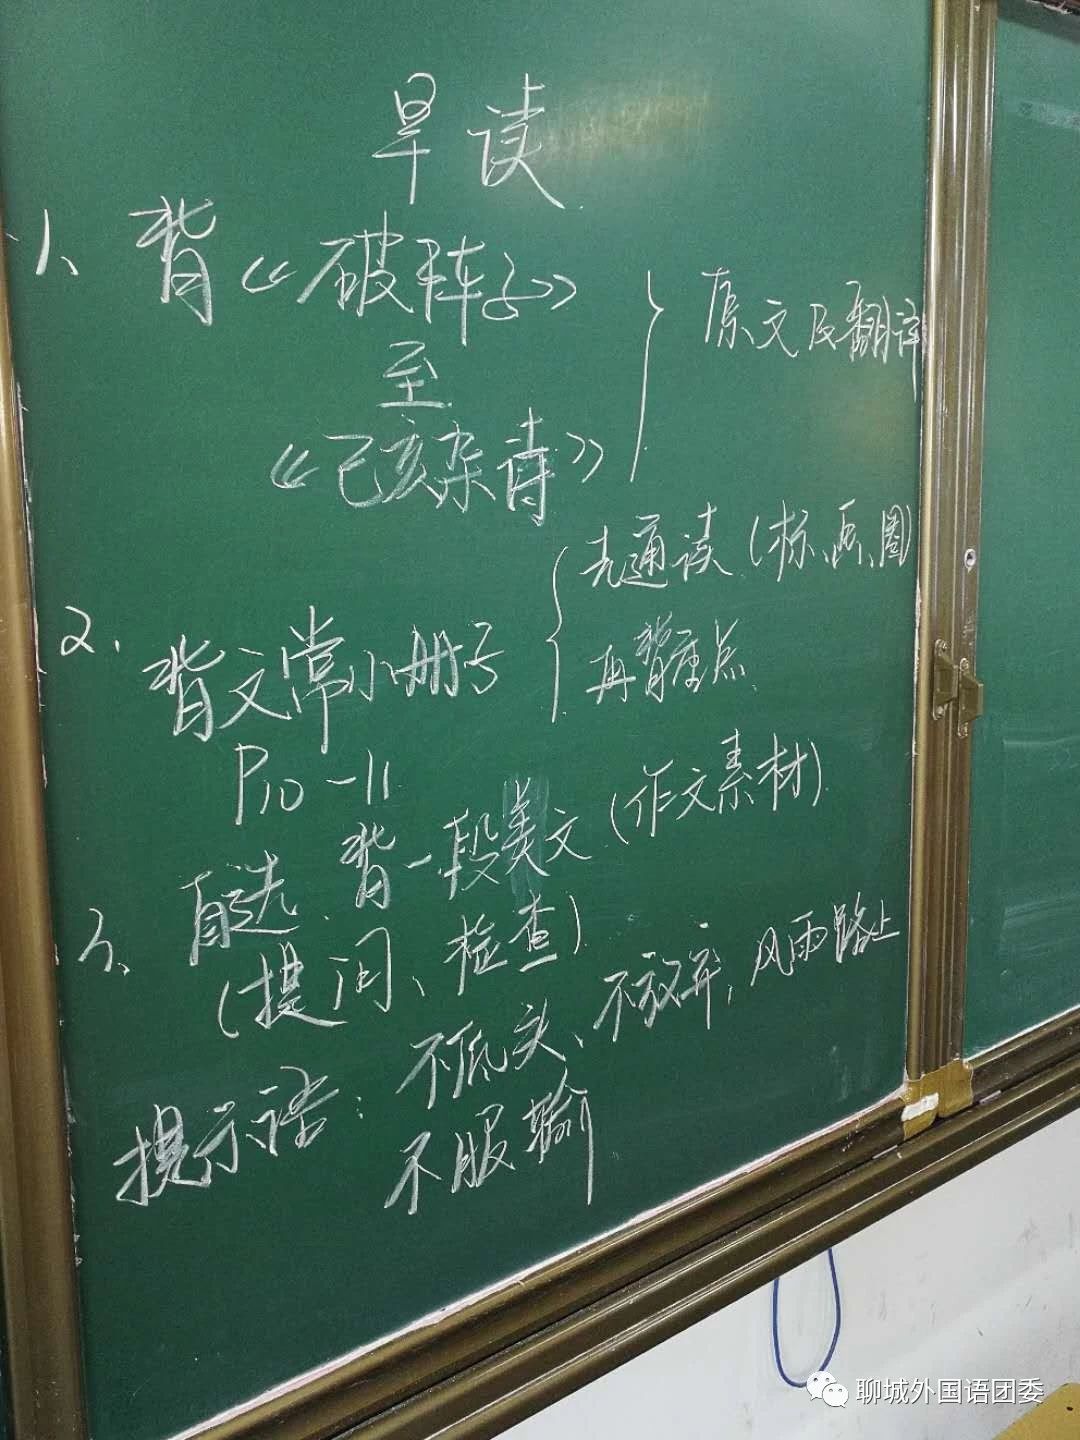 早读
1、背《破阵子》
至
《己亥杂诗》
原文及翻译
2、背文常小册子
P10-11
先通读(标、画、圈)
再背重点
3、自选 背一段美文(作文素材)
(提问、检查)
提示语：不低头、不放弃，风雨路上
不服输
聊城外国语团委